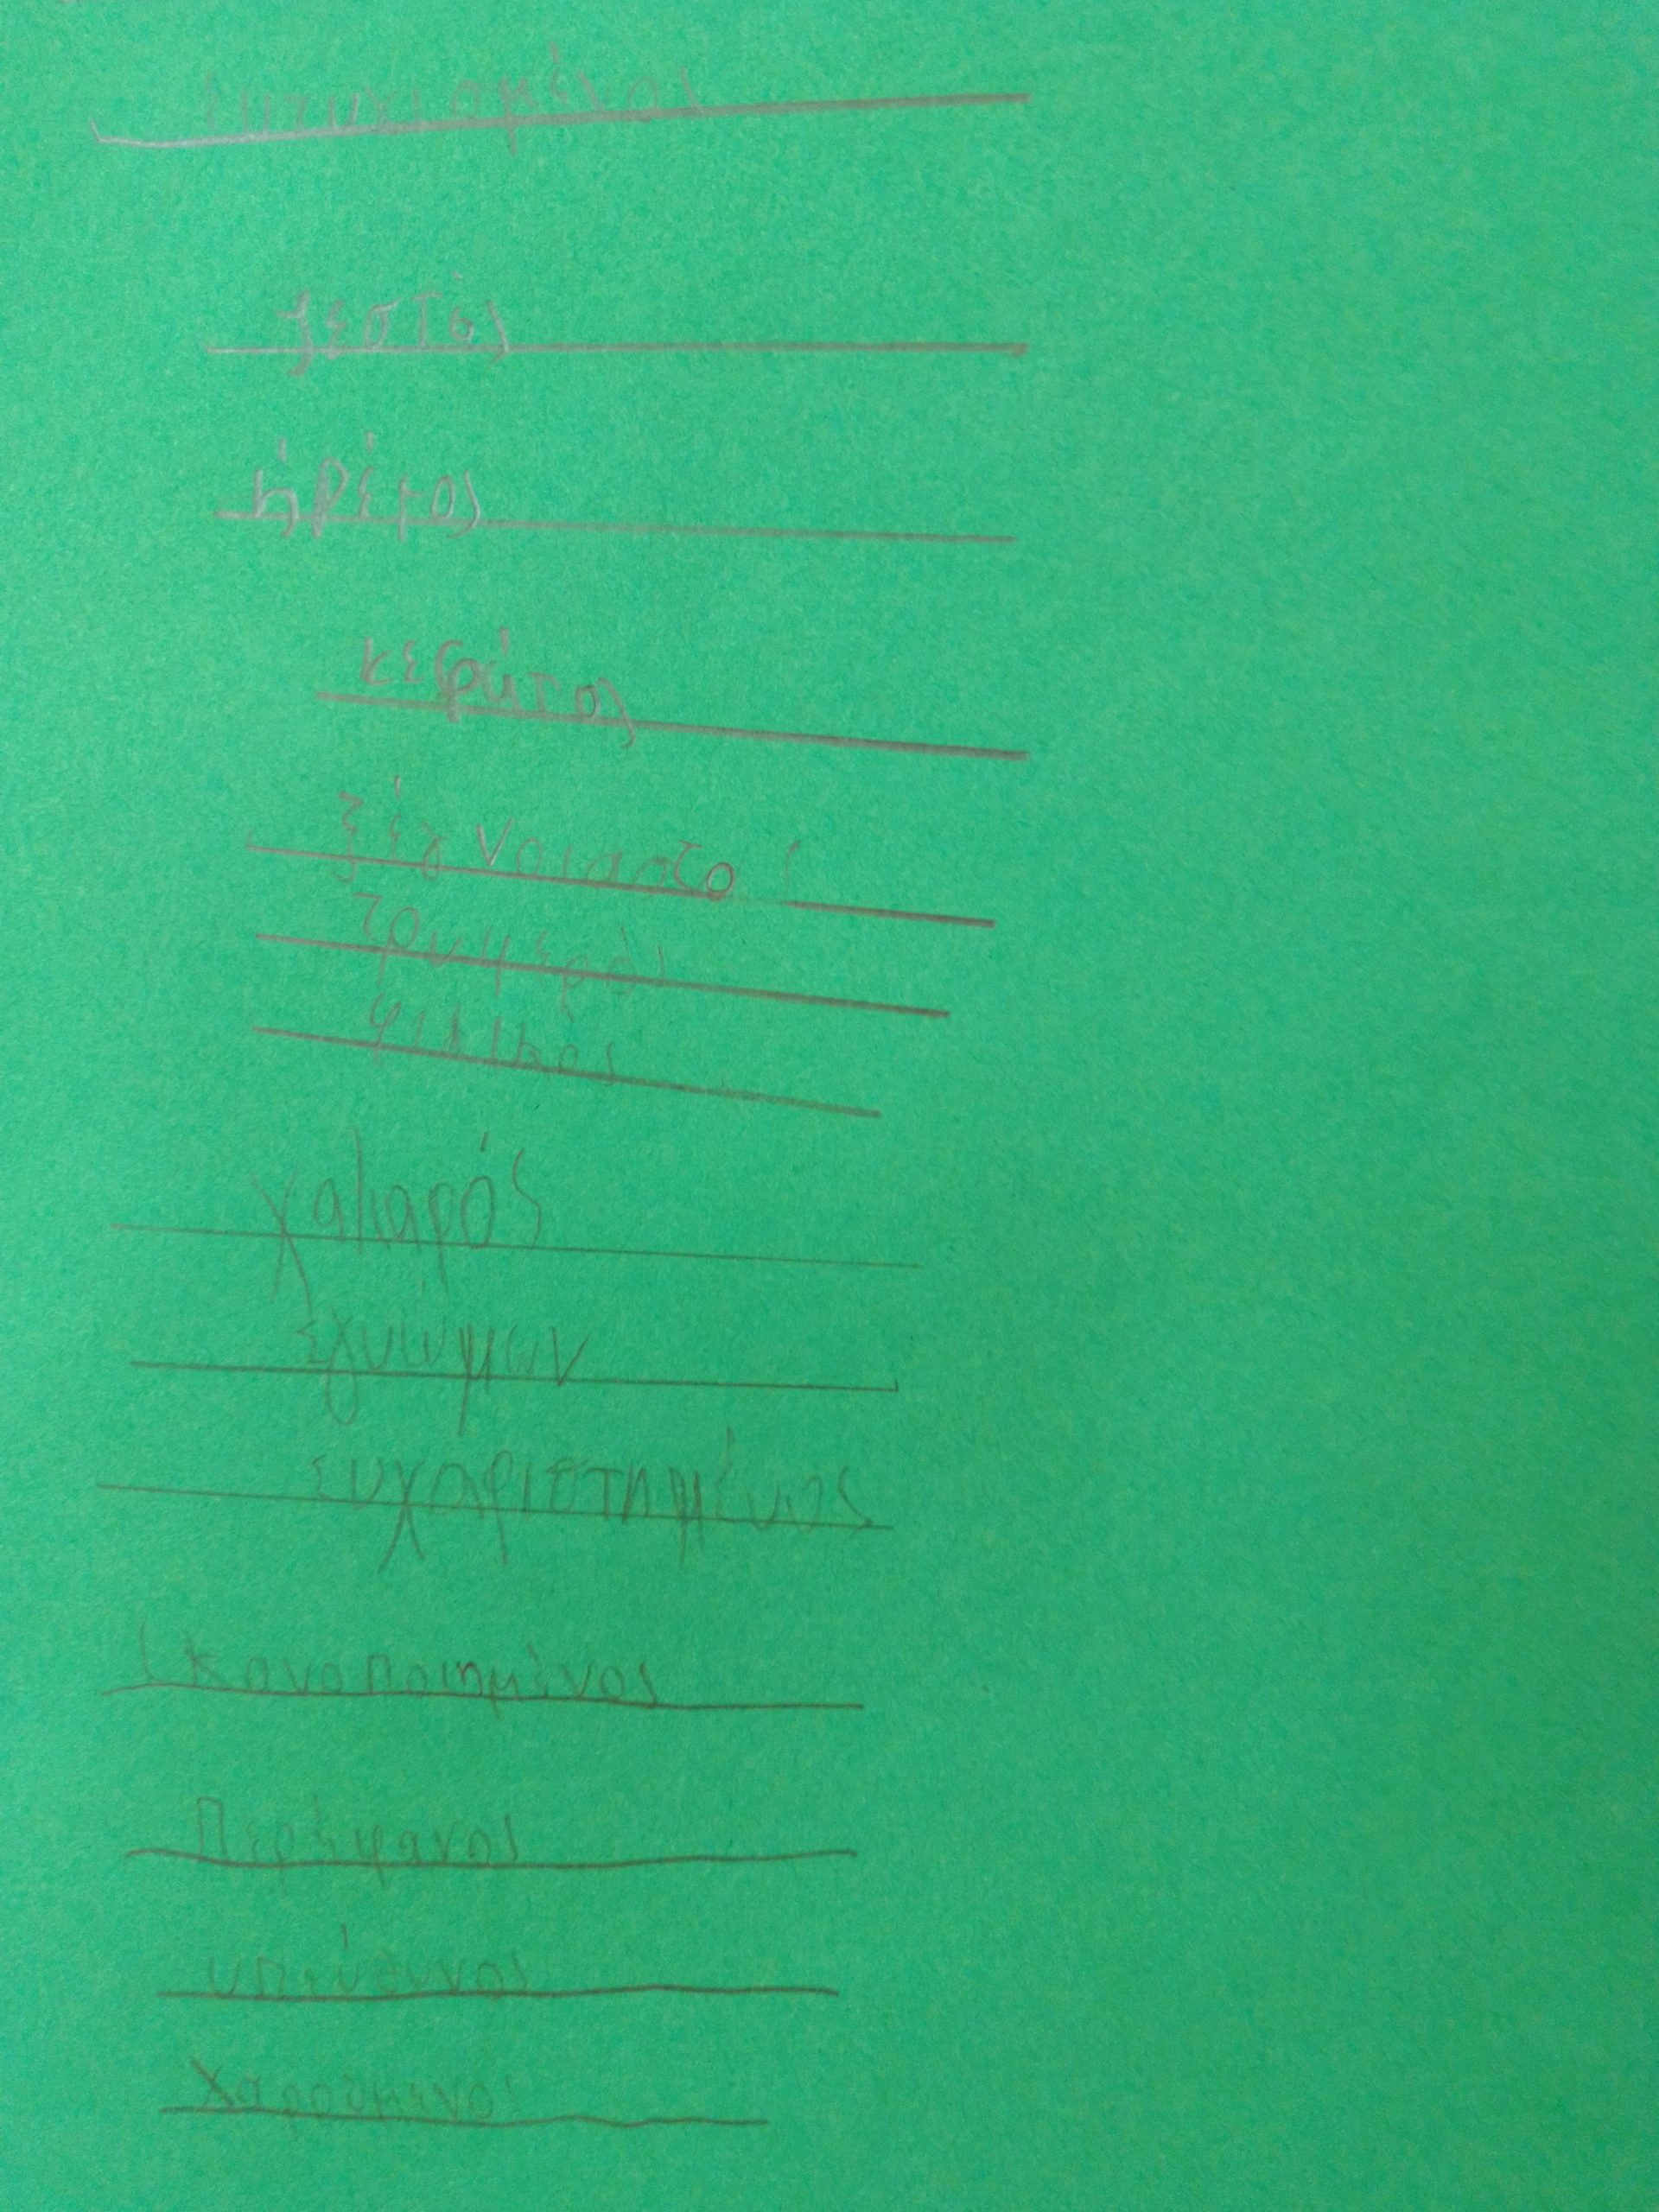 ευτυχισμένος
ζεστός
ήρέμος
κεφάτος
ξέγνοιαστος
τρυμερός
φιλικός
χαλαρός
ευχαριστημένος
ικανοποιημένος
Περέφανος
υπεύθυνος
Χαρούμενος